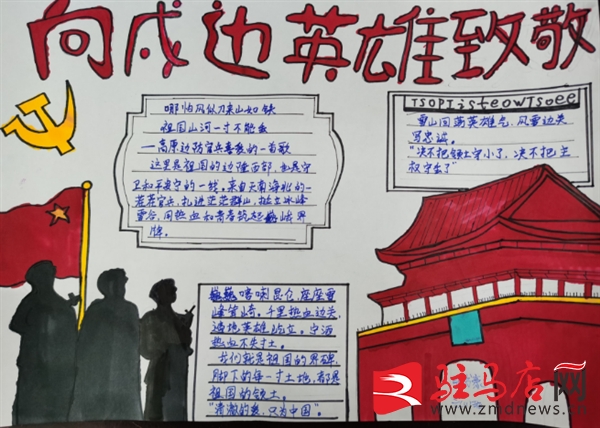 向戍边英雄致敬
哪怕风似刀来山如铁
祖国山河一寸不能丢
一高原边防官兵喜爱的一首歌
这里是祖国的边陲西部,也是守
卫和平安宁的一线,来自天南海北的一
茬茬官兵,扎进茫茫群山,挺立冰峰
雪谷,用热血和青春筑起巍峨界
碑。
TSOPTisteowTsoee
雪山回荡英雄气,风雪边关
写忠诚。
"决不把领土守小了,决不把主
权守丢了"
巍巍喀喇昆仑,座座雪
峰耸峙。千里热血边关,
遍地英雄屹立。宁洒
热血不失寸土。
我们就是祖国的界碑,
脚下的每一寸土地,都是
祖国的领土。
"清澈的爱,只为中国"。
驻马店网
www.zmdnews.cn